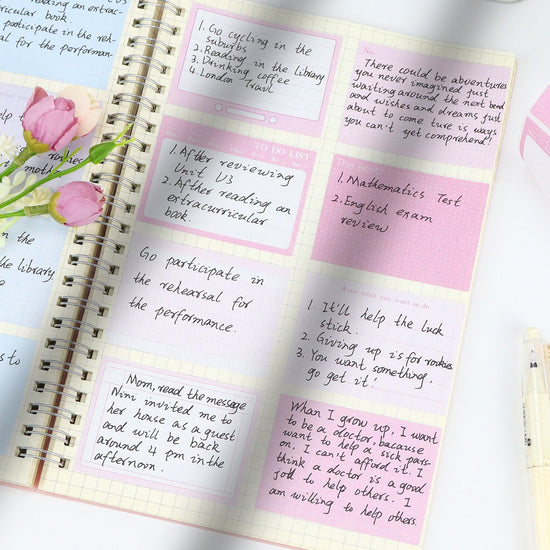 an extrac-
participate in the reh-
al for the performan-
the
the library
to
1. Go cycling in the
Suburbs
2. Reading in the library
3. Drinking coffee
4. London Travl
No.
There could be abventures
you never imagined just
waiting around the next bend
and wishes and dreams just
about to come ture is ways
you can't yet comprehend!
TO DO LIST
1. Afher reviewing
Unit U3
2. Afher reading an
extracurricular
book.
The
1. Mathematics Test
2. English exam
review
Go participate in
the rehearsal for
the performance.
Write what you want to do
1. It'll help the luck
stick.
2. Giving up is for rookies
3. You want something.
go get it!
Mom, read the message
Nini invited me to
her house as a guest
and will be back
around 4 pm in the
afternoon.
When I grow up, I want
to be a doctor, bacause
want to help a sick pars-
on, I can't afford it. I
think a doctor is a good
job to help others. I
am willing to help others.